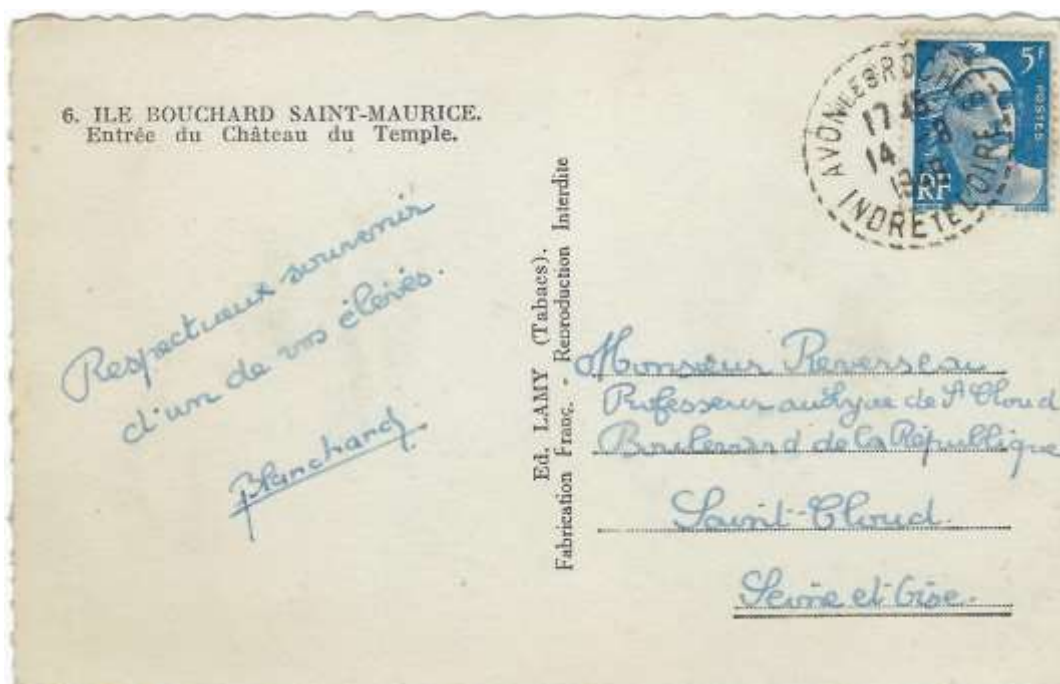 6. ILE BOUCHARD SAINT-MAURICE.
Entrée du Château du Temple.
Respectueux souvenir
d'un de vos élèves.
Blanchard
Ed. LAMY (Tabacs).
Fabrication Franç. - Reproduction Interdite
AVON LES ROCHES
17 45
14 8
INDRE ET LOIRE
5F
POSTES
RF
Monsieur Reverseau
Professeur au Lycée de St Cloud
Boulevard de la République
Saint-Cloud
Seine et Oise.